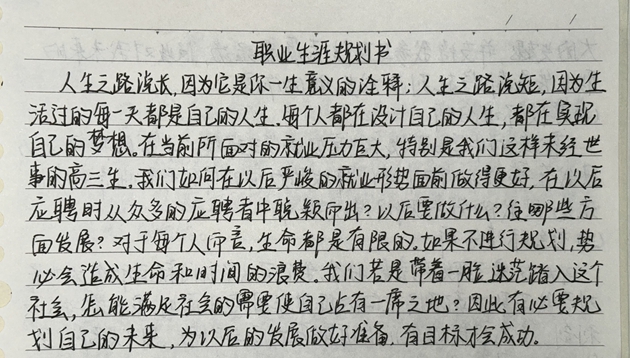 职业生涯规划书
人生之路说长,因为它是你一生意义的诠释;人生之路说短,因为生
活过的每一天都是自己的人生.每个人都在设计自己的人生,都在实现
自己的梦想。在当前所面对的就业压力巨大,特别是我们这样未经世
事的高三生.我们如何在以后严峻的就业形势面前做得更好,在以后
应聘时从众多的应聘者中脱颖而出?以后要做什么?往哪些方
面发展?对于每个人而言,生命都是有限的.如果不进行规划,势
必会造成生命和时间的浪费。我们若是带着一脸迷茫踏入这个
社会,怎能满足社会的需要使自己占有一席之地?因此有必要规
划自己的未来,为以后的发展做好准备.有目标才会成功。